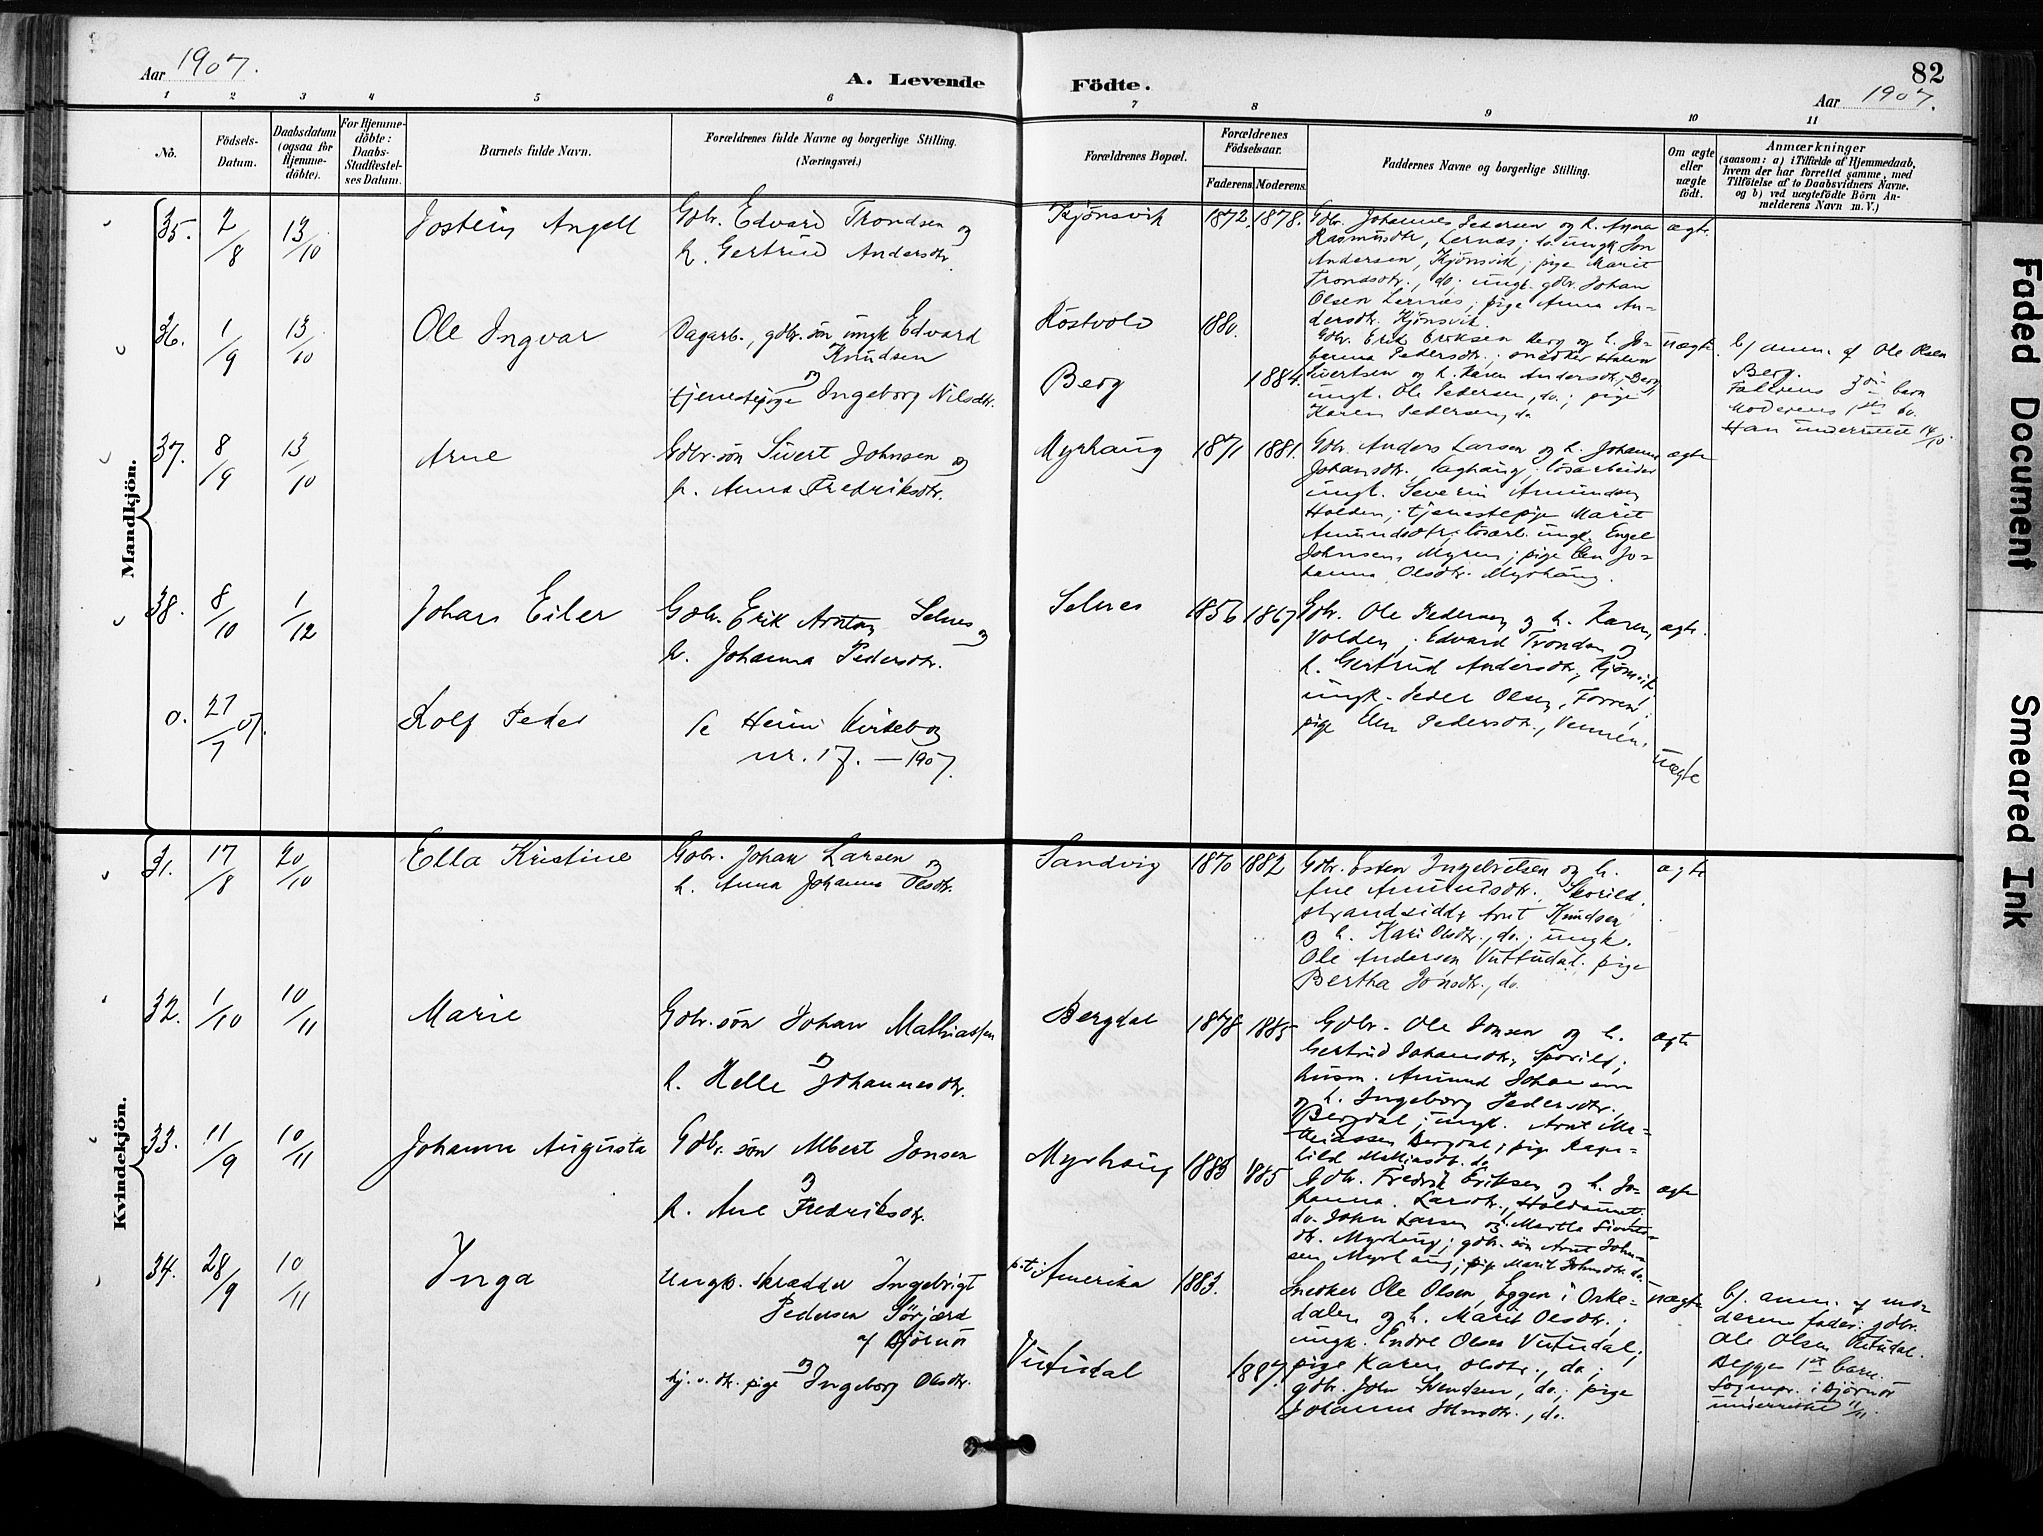 Aar 1907.
A. Levende Födte.
82
Aar 1907.
1 2 3 4 5 6 7 8 9 10 11
No.
Födsels-Datum.
Daabsdatum (ogsaa for Hjemme-döbte).
For Hjemme-döbte: Daabs-Stadfæstel-ses Datum.
Barnets fulde Navn.
Forældrenes fulde Navne og borgerlige Stilling.
(Næringsvei.)
Forældrenes Bopæl.
Forældrenes Födselsaar.
Faderens. Moderens.
Faddernes Navne og borgerlige Stilling.
Om ægte eller uægte födt.
Anmærkninger
(saasom: a) i Tilfælde af Hjemmedaab,
hvem der har forrettet samme, med
Tilföielse af to Daabsvidners Navne.
og b) ved uægtefödte Börn An-
melderens Navn m. V.)
Mandkjön.
35. 2/8 13/10 Jostein Angell
Gbr. Edvard Trondsen og
h. Gertrud Andersdtr.
Kjönsvik 1872. 1878.
Gbr. Johannes Pedersen og h. Anna
Rasmusdtr, Lernæs; ungk. Jon
Andersen, Kjönsvik; pige Marit
Trondsdtr., do; ungk. gbr. Johan
Olsen Lernæs; pige Anna An-
dersdtr. Kjönsvik.
ægte
36. 1/9 13/10 Ole Ingvar
Dagarb., gbr. sön ungk Edvard
Knudsen
og
tjenestepige Ingeborg Nilsdtr.
Röstvold 1880.
Berg 1884.
Gbr. Erik Eriksen Berg og h. Jo-
hanna Pedersdtr.; snedker Halvor
Sivertsen og h. Karen Andersdtr., Berg
ungk. Ole Pedersen, do.; pige
Karen Pedersen, do
uægte
b) anm. af Ole Olsen
Berg.
Faderens 3die barn
Moderens 1ste do.
Han underrettet 14/10.
37. 8/9 13/10 Arne
Gbr. sön Sivert Johnsen og
h. Anna Fredriksdtr.
Myrhaug 1871 1881.
Gbr. Anders Larsen og h. Johanna
Johansdtr. Haghaug; lösarbeider
ungk. Severin Amundsen
Holden; tjenestepige Marit
Amundsdtr; lösarb. ungk. Engel
Johnsen, Myren; pige Jo-
hanna Olsdtr. Myrhaug.
ægte
38. 8/10 1/12 Johan Eiler
Gbr. Erik Arntsen Selnes og
h. Johanna Pedersdtr.
Selnes 1856 1867
Gbr. Ole Pedersen og h. Karen,
Volden; Edvard Trondsen og
h. Gertrud Andersdtr, Kjönsvik;
ungk. Peder Olsen, Forren;
pige Elen Pedersdtr., Vennen.
ægte.
o. 27/7 07. Rolf Peder
Se Heim Kirkebog
nr. 17. – 1907.
uægte
Kvindekjön.
31. 17/8 20/10 Ella Kristine
Gbr. Johan Larsen og
h. Anna Johanna Olsdtr.
Sandvig 1870 1882
Gbr. Esten Ingebretsen og h.
Ane Amundsdtr. Skorild.
strandsidder Arnt Knudsen
og h. Kari Olsdtr., do.; ungk.
Ole Andersen Vuttudal; pige
Bertha Jonsdtr., do.
ægte
32. 1/10 10/11 Marie
Gbr. sön Johan Mathiassen
og
h. Helle Johannesdtr.
Bergdal 1878 1885
Gbr. Ole Jonsen og h.
Gertrud Johansdtr, Skorild;
husm. Amund Johansen
og h. Ingeborg Pedersdtr.
Bergdal; ungk. Arnt Ma-
thiassen Bergdal; pige Ragn-
hild Mathiasdtr. do
ægte
33. 11/9 10/11 Johanna Augusta
Gbr. sön Albert Jonsen
og
h. Ane Fredriksdtr.
Myrhaug 1883 1885
Gbr. Fredrik Eriksen og h. Jo-
hanna Larsdtr., Holdaunet.
do. John Larsen og h. Martha Siverts-
dtr. Myrhaug; gbr. sön Arnt John-
sen, Myrhaug; pige Marit Johnsdtr. do.
ægte
34. 28/9 10/11 Inga
Ungk. skrædder Ingebrigt
Pedersen Sörjærd
af Björnör
og
hj. v. dtr. pige Ingeborg Olsdtr.
p.t. Amerika 1883.
Vuttudal 1887.
Snedker Ole Olsen, Eggen i Orke-
dalen og h. Marit Olsdtr.;
ungk. Endre Olsen Vutudal;
pige Karen Olsdtr., do.;
gbr. John Svendsen, do.; pige
Johanna Johnsdtr., do.
uægte
b). anm. af mo-
derens fader: gbr.
Ole Olsen Vutudal.
Begges 1ste barn.
Sognepr. i Björnör
underrettet 11/11.
Faded Document
Smeared Ink